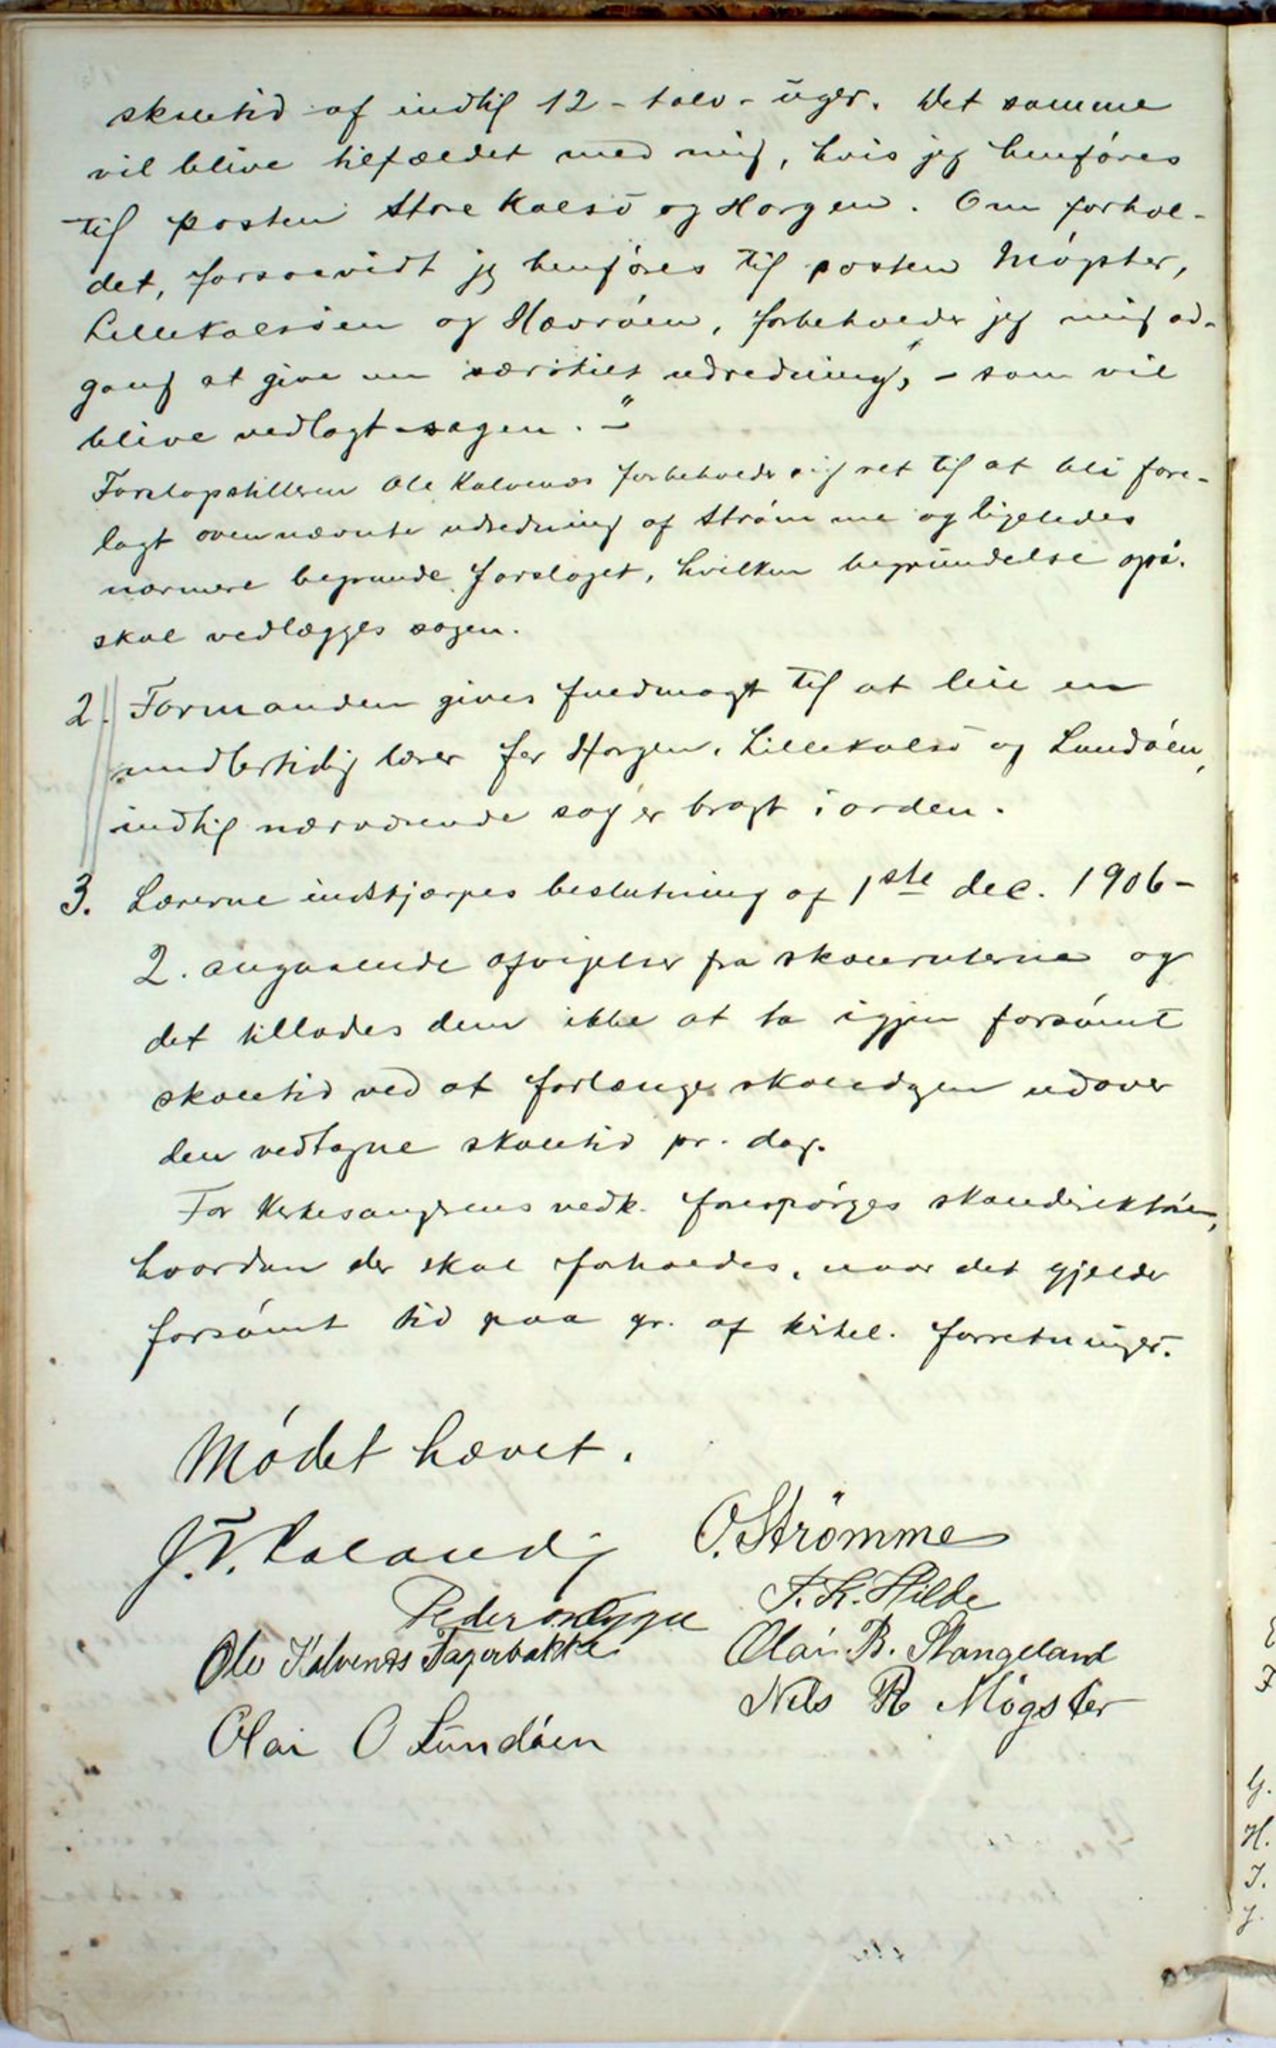 skoletid af indtil 12 - tolv - uger. Det samme
vil blive tilfældet med mig, hvis jeg henføres
til posten Store Kalsø og Horgen. Om forhol-
det, forsaavidt jeg henføres til posten Møgster,
Lillekalsøen og Havrøen, forbeholder jeg mig ad-
gang at give en særskilt udredning, - som vil
blive vedlagt sagen. -"
Forslagstilleren Ole Kalvenes forbeholder sig ret til at bli fore-
lagt ovennævnte udredning af Strømme og ligeledes
nærmere begrunde forslaget, hvilken begrundelse også
skal vedlægges sagen.
2. Formanden gives fuldmagt til at leie en
midlertidig lærer for Horgen, Lillekalsø og Lundøen,
indtil nærværende sag er bragt i orden.
3. Lærerne indskjærpes beslutning af 1ste dec. 1906 -
2. angaaende afvigelser fra skoleruterne og
det tillades dem ikke at ta igjen forsømt
skoletid ved at forlænge skoledagen udover
den vedtagne skoletid pr. dag.
For kirkesangerens vedk. forespørges skoledirektøren,
hvordan der skal forholdes, naar det gjelder
forsømt tid paa gr. af kirkel. forretninger.
Mødet hævet.
O. Strömme
Peder
Ole Kalvenes Fagerbakke
Olai B. Stangeland
Nils R Møgster
Olai O Lundøen